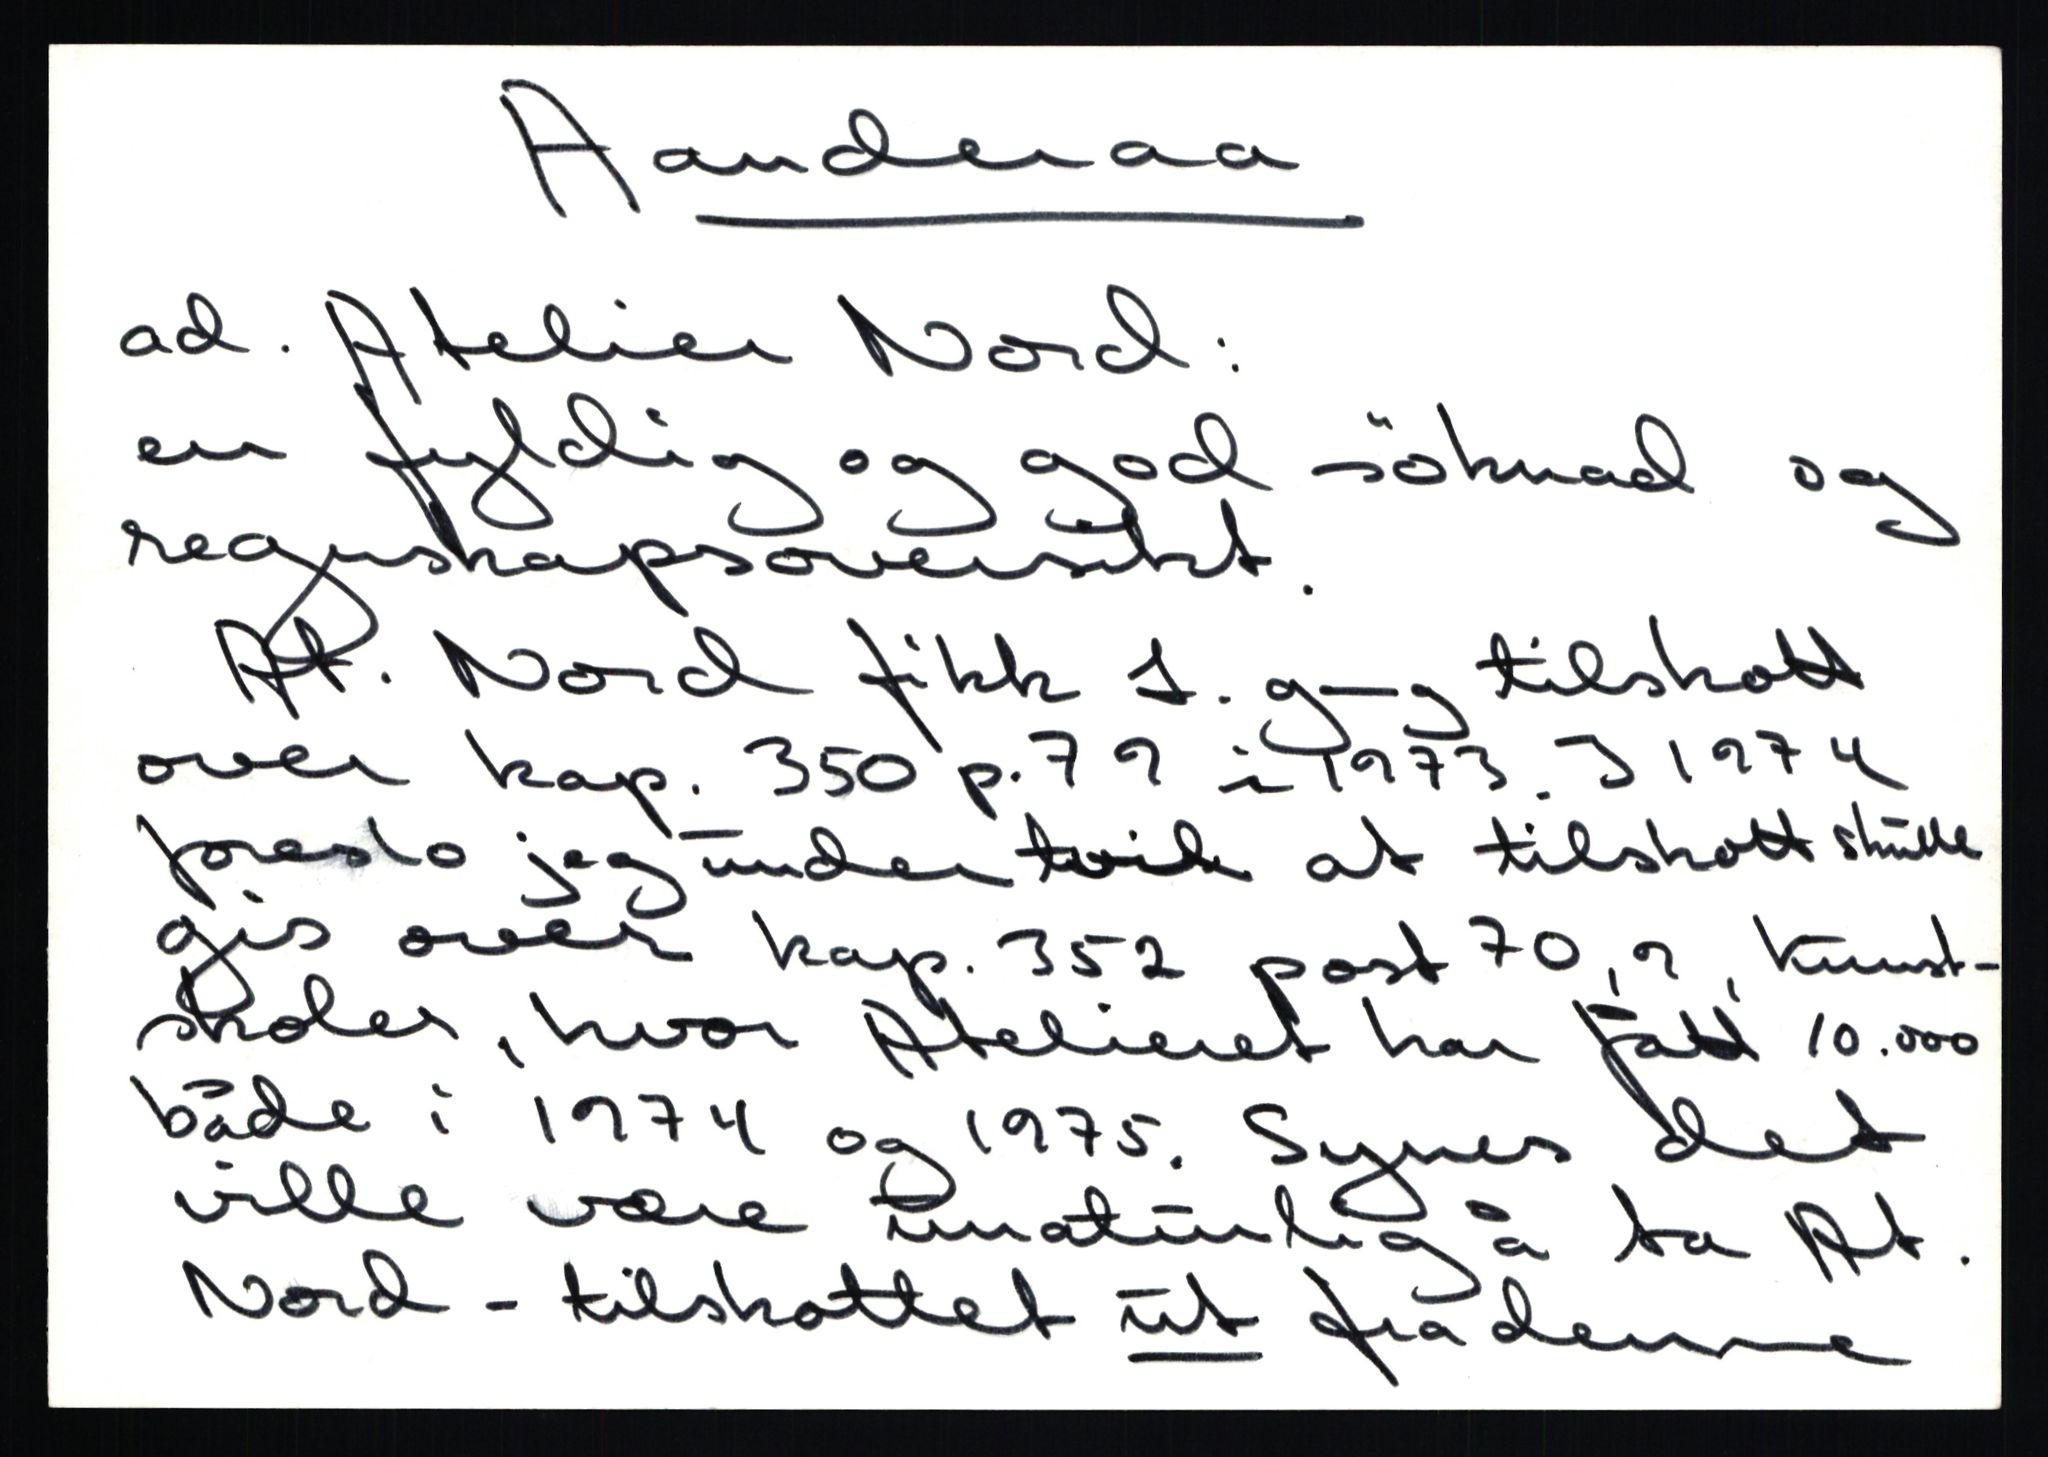 Aanderaa
ad. Atelier Nord:
en fyldig og god söknad og
regnskapsoversikt.
At. Nord fikk 1. g-g tilskott
over kap. 350 p. 79 i 1973. I 1974
foreslo jeg under tvil at tilskott skulle
gis over kap. 352 post 70, 9, Kunst-
skoler, hvor Atelieret har fått 10.000
både i 1974 og 1975. Synes det
ville være unaturlig å ta At.
Nord - tilskottet ut fra denne